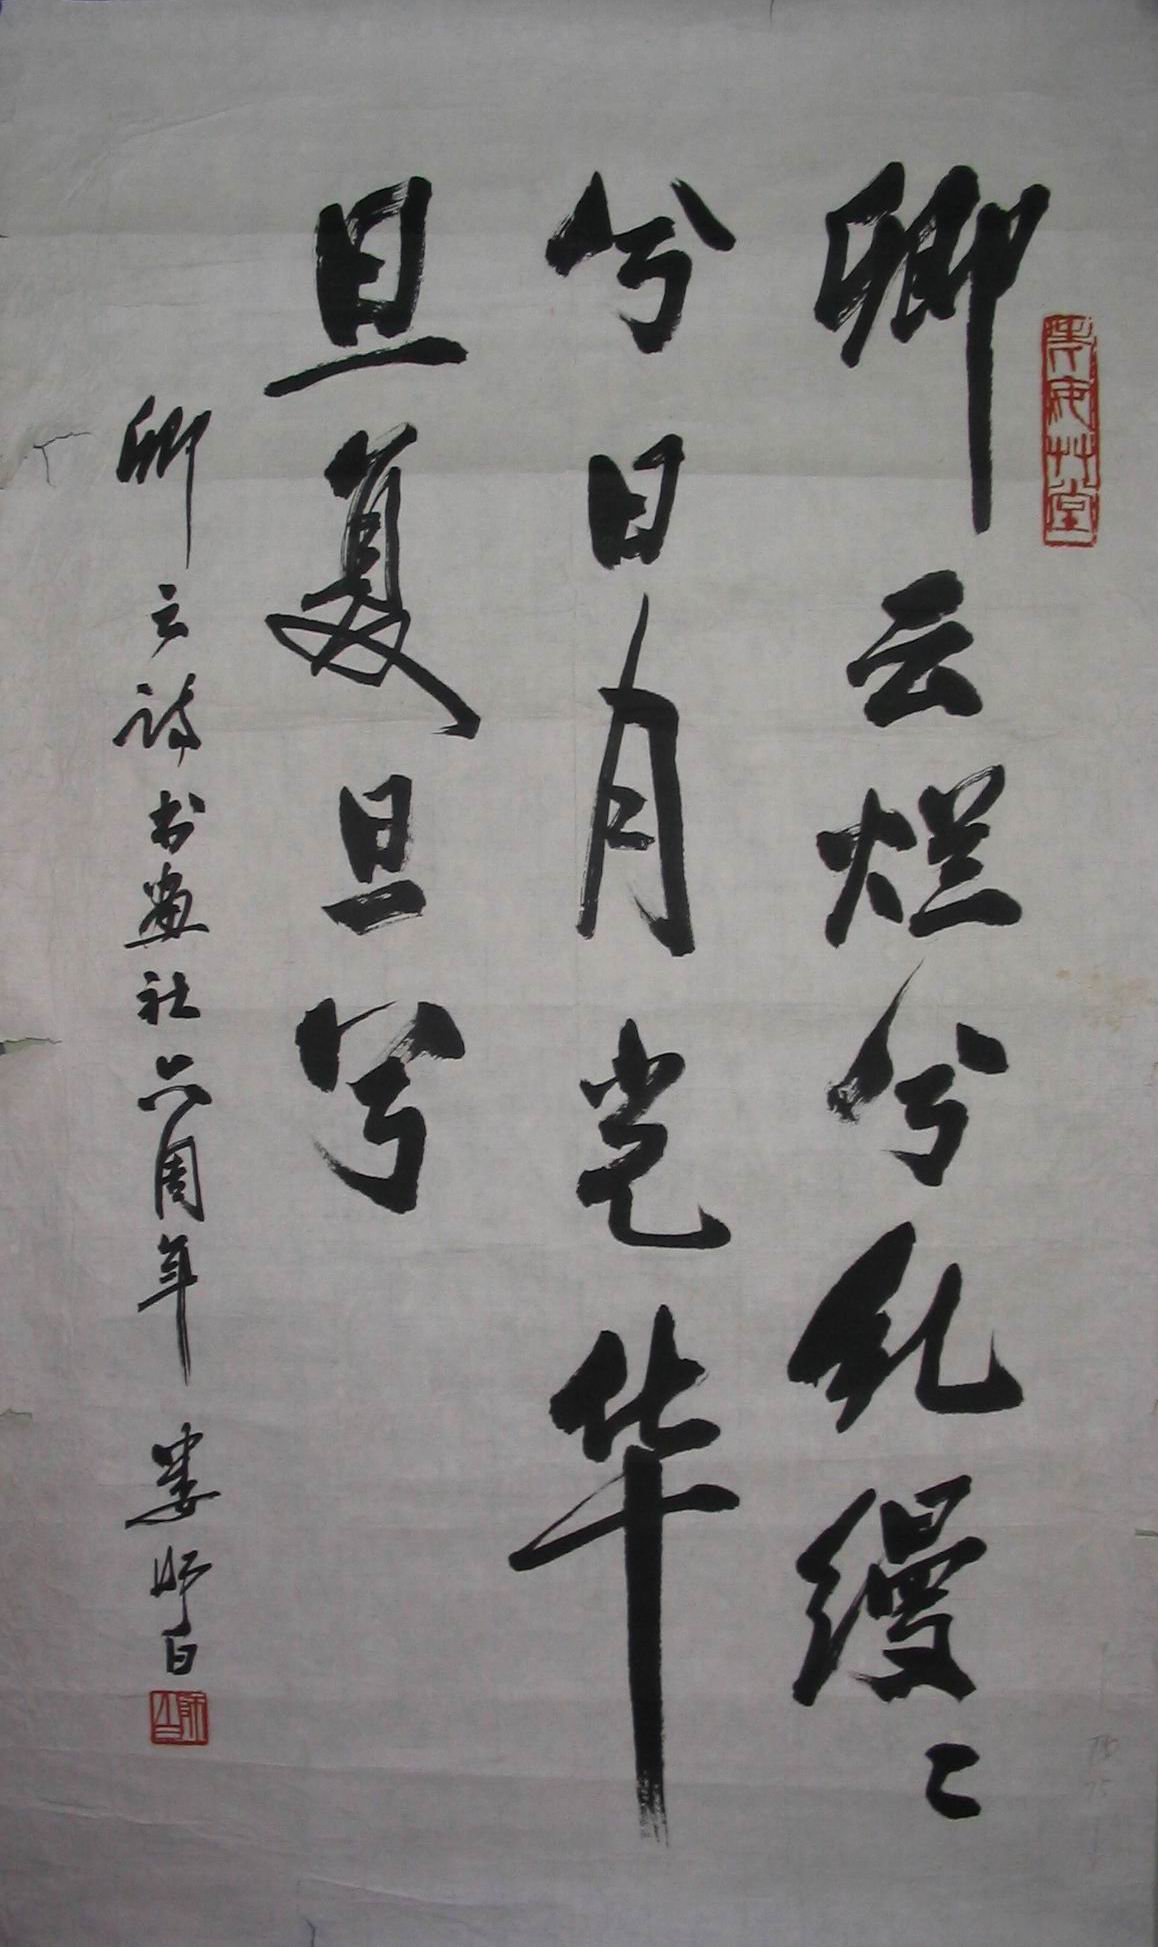 卿云烂兮纠缦〻
兮日月光华
旦复旦兮
卿云诗书画社六周年 娄师白
师白